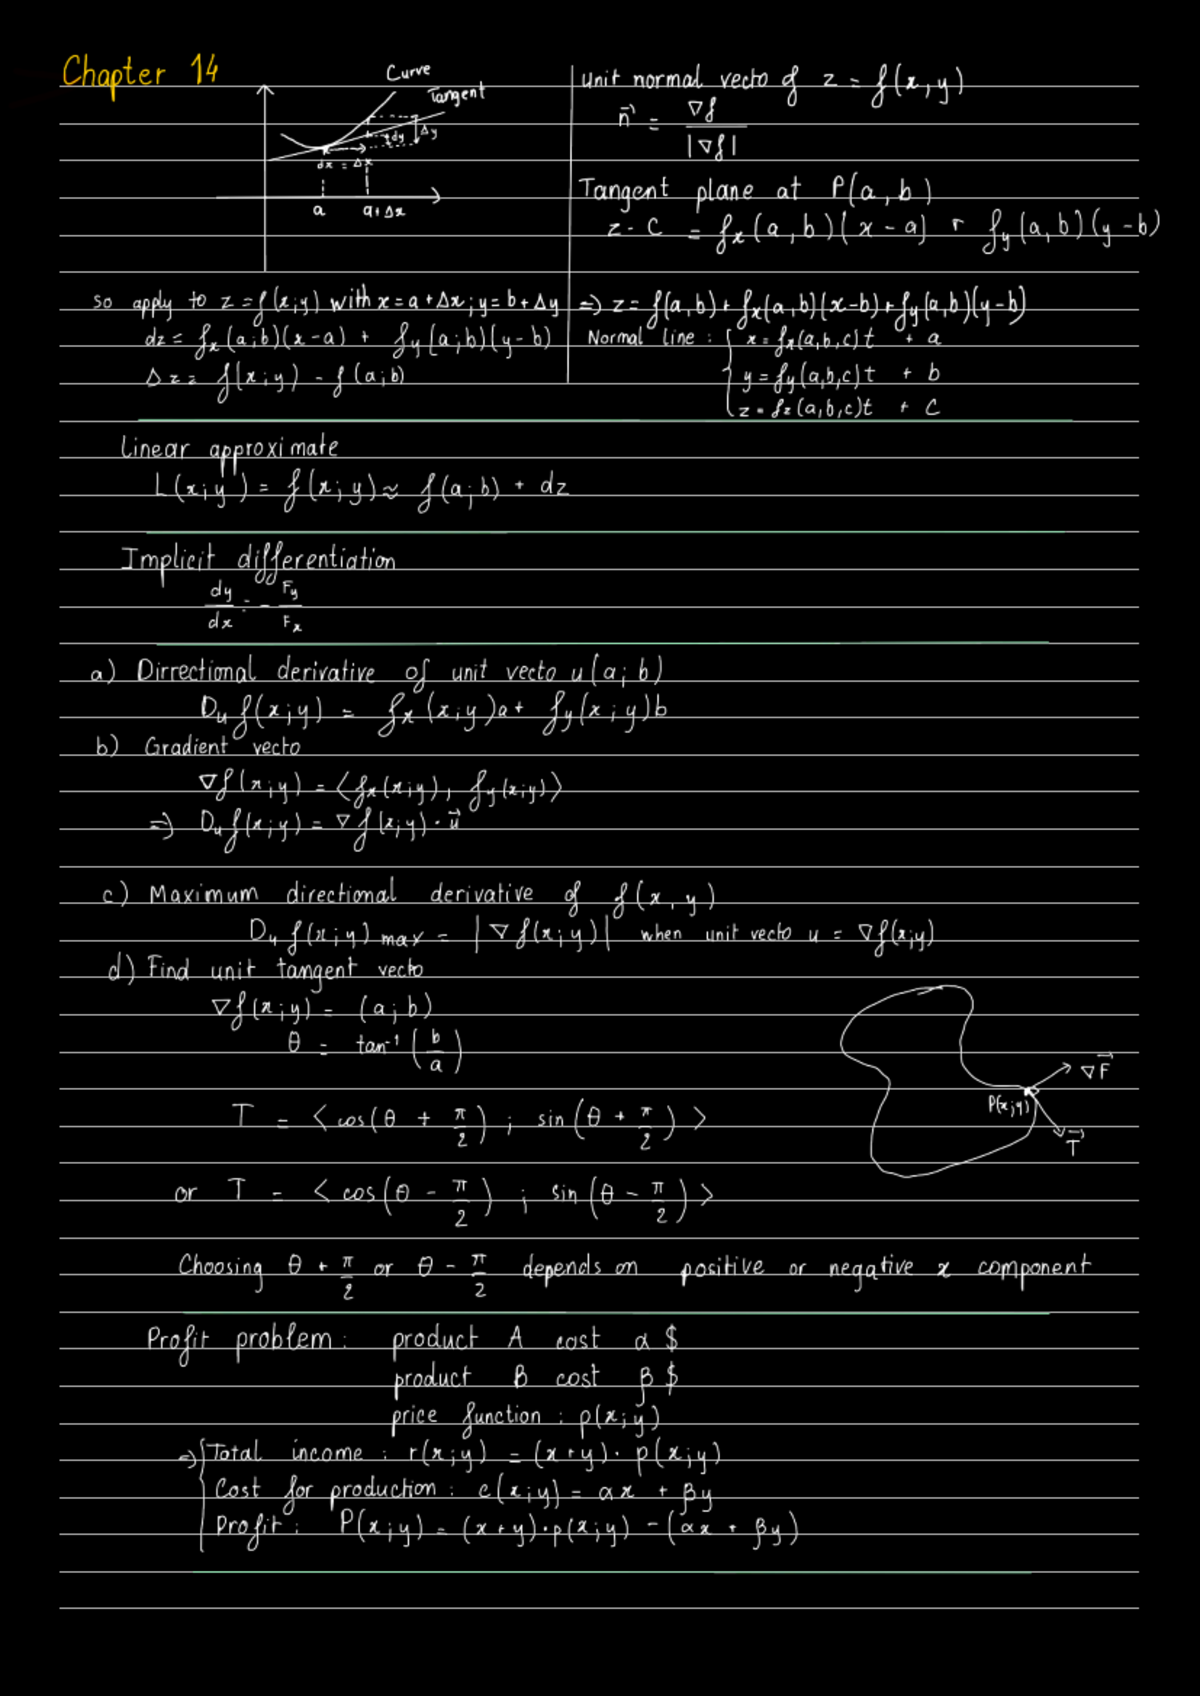 Chapter 14
Curve
Tangent
dy
Δy
dx = Δx
a
a+Δx
so apply to z = f(x;y) with x = a + Δx; y = b + Δy
dz = fx(a;b)(x-a) + fy(a;b)(y-b)
Δz = f(x;y) - f(a;b)
unit normal vecto of z = f(x,y)
n⃗ = ∇f / |∇f|
Tangent plane at P(a,b)
z - c = fx(a,b)(x-a) + fy(a,b)(y-b)
=> z = f(a,b) + fx(a,b)(x-b) + fy(a,b)(y-b)
Normal line : { x = fx(a,b,c)t + a
y = fy(a,b,c)t + b
z = fz(a,b,c)t + c
Linear approximate
L(x;y) = f(x;y) ≈ f(a;b) + dz
Implicit differentiation
dy/dx = - Fy/Fx
a) Dirrectional derivative of unit vecto u(a;b)
Du f(x;y) = fx(x;y)a + fy(x;y)b
b) Gradient vecto
∇f(x;y) = ⟨fx(x;y), fy(x;y)⟩
=> Du f(x;y) = ∇f(x;y) · u⃗
c) Maximum directional derivative of f(x,y)
Du f(x;y) max = |∇f(x;y)| when unit vecto u = ∇f(x;y)
d) Find unit tangent vecto
∇f(x;y) = (a;b)
θ = tan⁻¹(b/a)
T = <cos(θ + π/2) ; sin(θ + π/2)>
or T = <cos(θ - π/2) ; sin(θ - π/2)>
∇F⃗
P(x;y)
T⃗
Choosing θ + π/2 or θ - π/2 depends on positive or negative x component
Profit problem : product A cost α $
product B cost β $
price function : p(x;y)
=> { Total income : r(x;y) = (x+y) · p(x;y)
Cost for production : c(x;y) = αx + βy
Profit : P(x;y) = (x+y)·p(x;y) - (αx + βy)